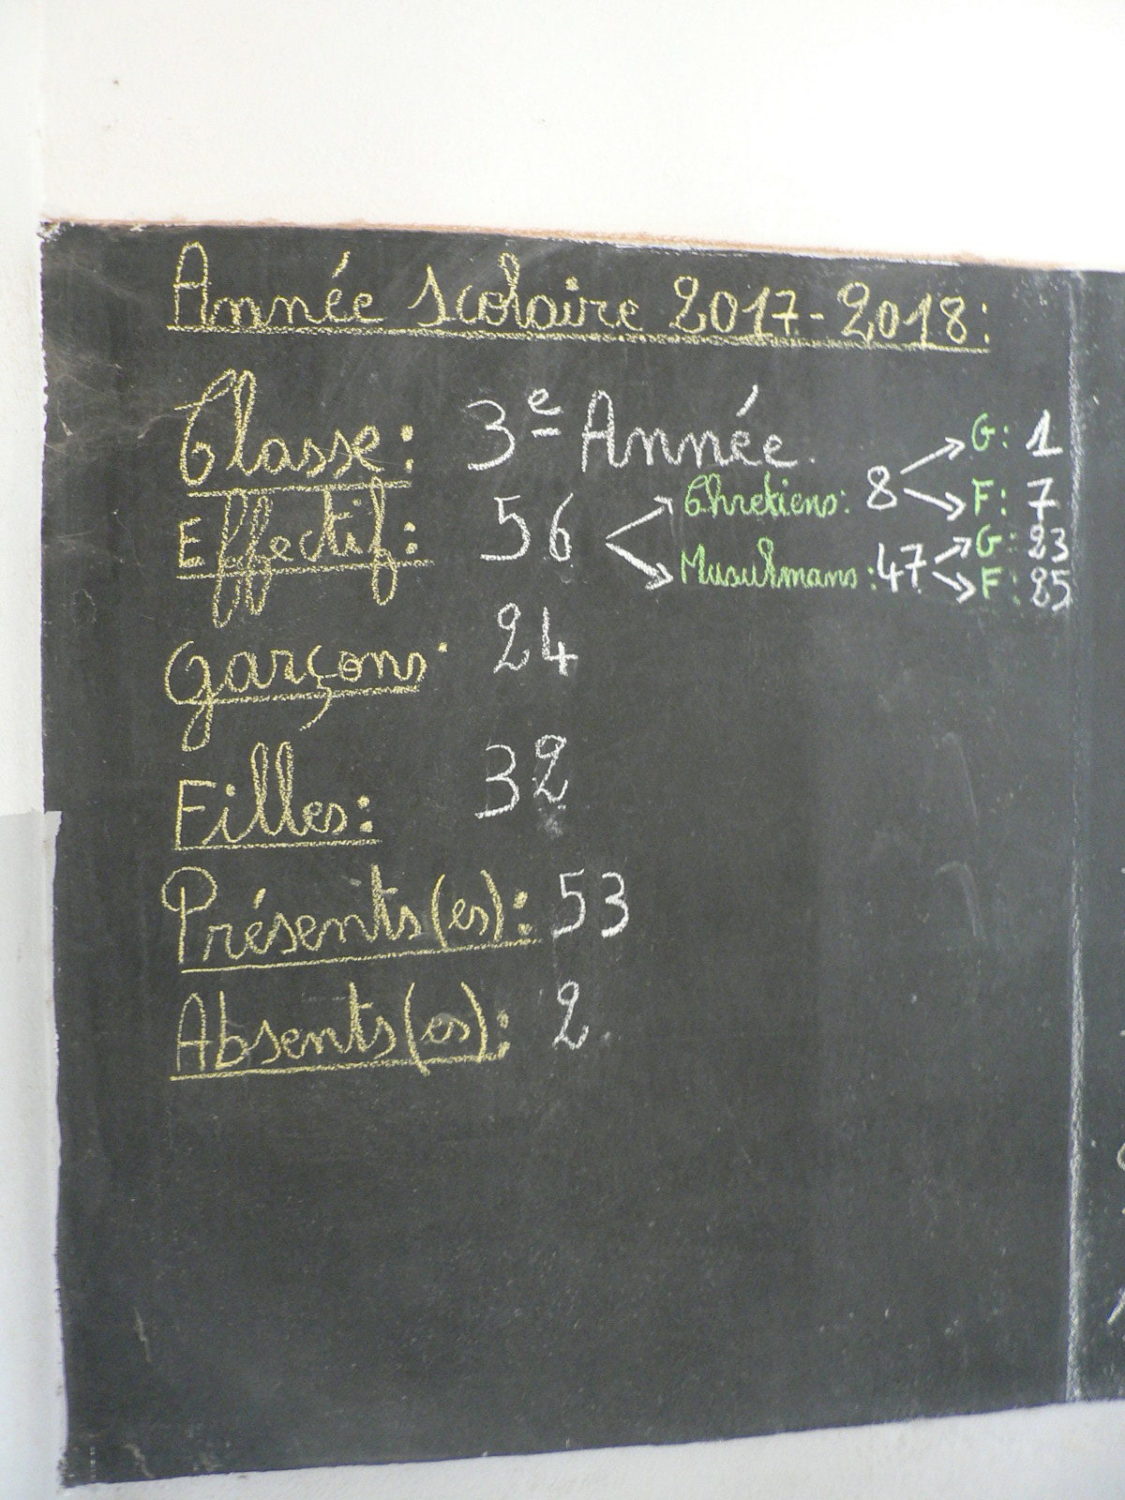 Année Scolaire 2017-2018:
Classe: 3e Année
Effectif: 56
Chretiens: 8
G: 1
F: 7
Musulmans: 47
G: 23
F: 25
Garçons: 24
Filles: 32
Présents(es): 53
Absents(es): 2